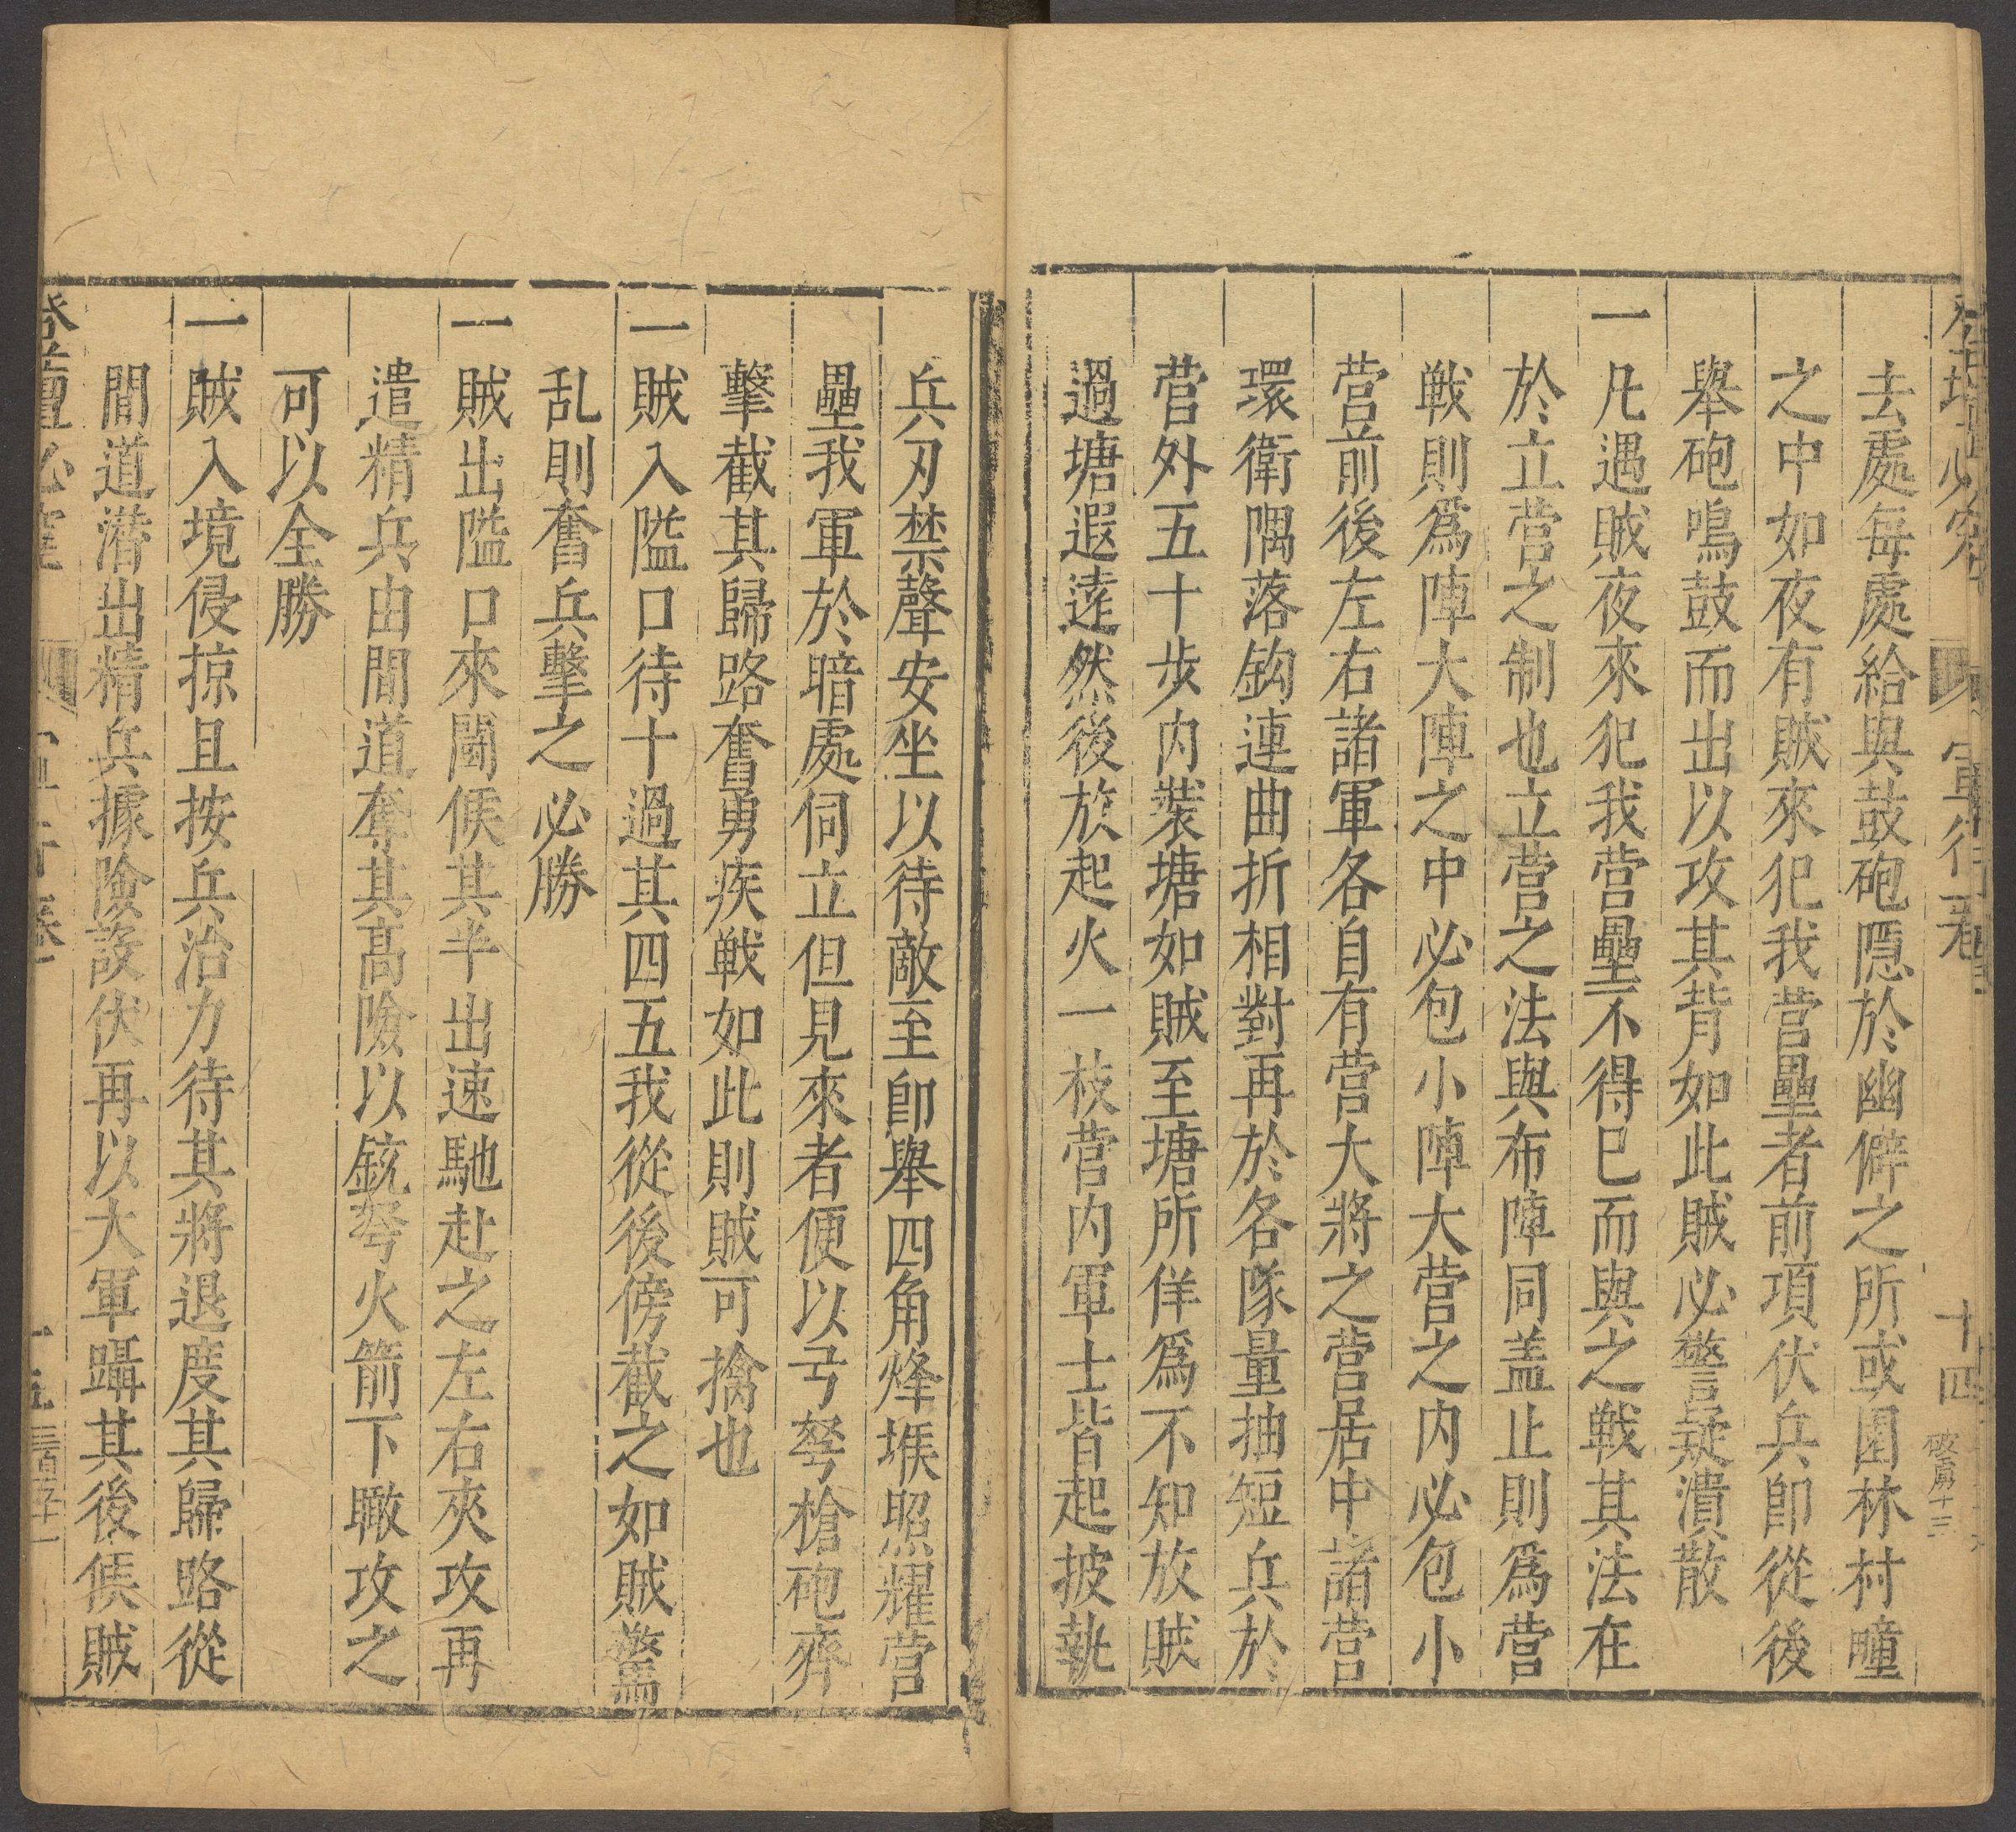 登壇必究
軍行一卷
十四
去處每處給與鼓砲隱於幽僻之所或園林村疃
之中如夜有賊來犯我营壘者前項伏兵即從後
舉砲鳴鼓而出以攻其背如此賊必警疑潰散
一凡遇賊夜來犯我营壘不得已而與之戦其法在
於立营之制也立营之法與布陣同盖止則爲营
戦則爲陣大陣之中必包小陣大营之内必包小
营前後左右諸軍各自有营大將之营居中諸营
環衛隅落鈎連曲折相對再於各隊量抽短兵於
营外五十步内裝塘如賊至塘所佯爲不知放賊
過塘遐遠然後放起火一枝营内軍士皆起披執
兵刃禁聲安坐以待敵至即舉四角烽堠照耀营
壘我軍於暗處伺立但見來者便以弓弩槍砲齊
擊截其歸路奮勇疾戦如此則賊可擒也
一賊入隘口待十過其四五我從後傍截之如賊驚
乱則奮兵擊之必勝
一賊出隘口來鬪候其半出速馳赴之左右夾攻再
遣精兵由間道奪其高險以銃弩火箭下瞰攻之
可以全勝
一賊入境侵掠且按兵治力待其將退度其歸路從
間道潛出精兵據險設伏再以大軍躡其後候賊